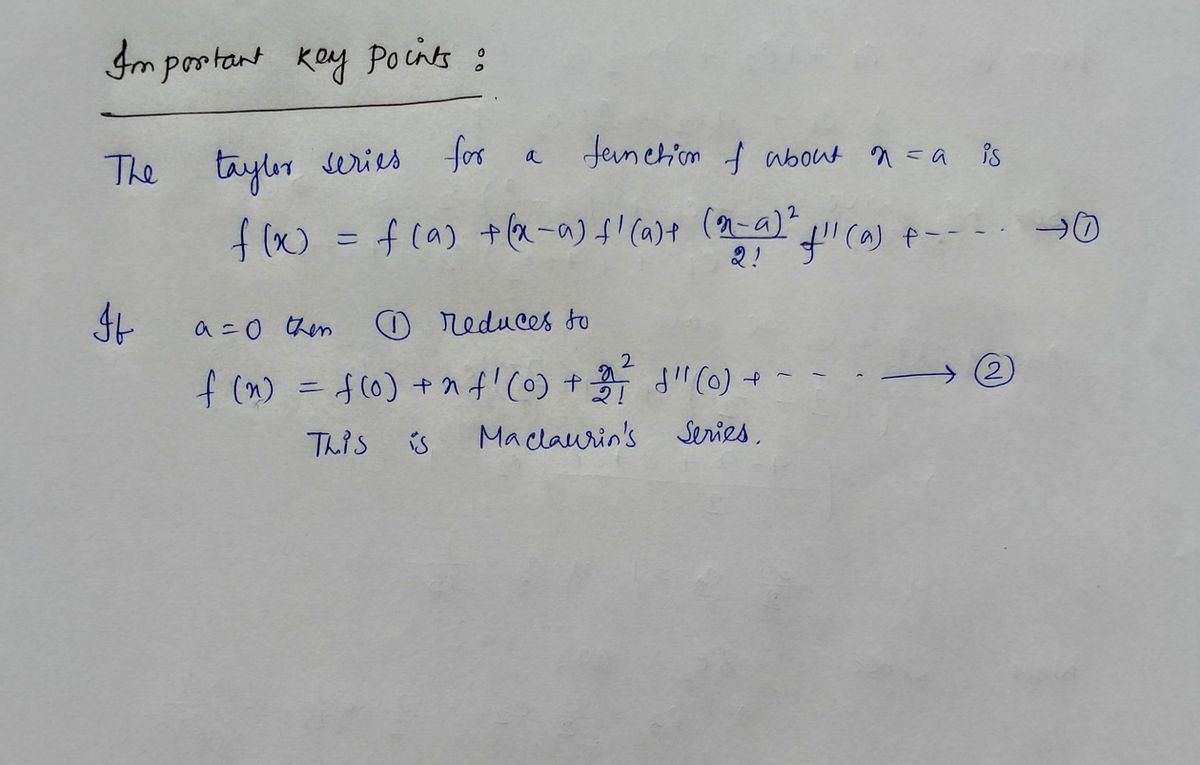 Important key points :
The taylor series for a function f about x = a is
f(x) = f(a) + (x-a) f'(a) + (x-a)²/2! f''(a) + ---- → ①
If a = 0 then ① reduces to
f(x) = f(0) + x f'(0) + x²/2! f''(0) + --- → ②
This is Maclaurin's series.